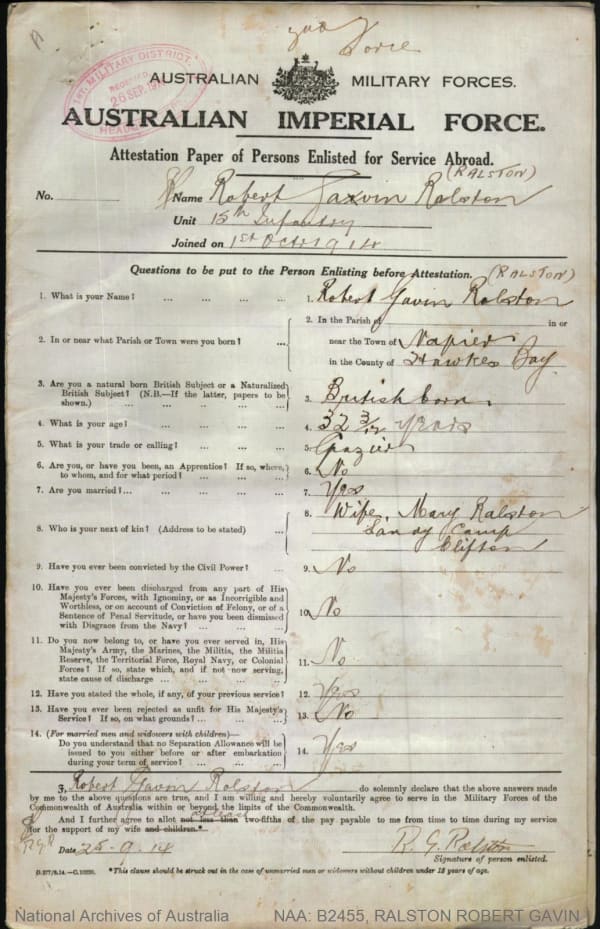 Force
1ST. MILITARY DISTRICT.
RECEIVED
26 SEP. 1914
HEADQUARTERS
AUSTRALIAN MILITARY FORCES.
AUSTRALIAN IMPERIAL FORCE.
Attestation Paper of Persons Enlisted for Service Abroad.
(RALSTON)
No. Name Robert Gavin Ralston
Unit 15th Infantry
Joined on 1st Octr 1914
Questions to be put to the Person Enlisting before Attestation. (RALSTON)
1. What is your Name? ... ... ... ... 1. Robert Gavin Ralston
2. In or near what Parish or Town were you born? ... 2. In the Parish of in or
near the Town of Napier
in the County of Hawkes Bay
3. Are you a natural born British Subject or a Naturalized
British Subject? (N.B.—If the latter, papers to be
shown.) ... ... ... ... ... 3. British born.
4. What is your age? ... ... ... ... 4. 32 3/12 years
5. What is your trade or calling? ... ... ... 5. Grazier
6. Are you, or have you been, an Apprentice? If so, where,
to whom, and for what period? ... ... ... 6. No
7. Are you married?... ... ... ... ... 7. Yes
8. Who is your next of kin? (Address to be stated) ... 8. Wife, Mary Ralston
Sandy Camp
Clifton
9. Have you ever been convicted by the Civil Power? ... 9. No
10. Have you ever been discharged from any part of His
Majesty's Forces, with Ignominy, or as Incorrigible and
Worthless, or on account of Conviction of Felony, or of a
Sentence of Penal Servitude, or have you been dismissed
with Disgrace from the Navy? ... ... ... 10. No
11. Do you now belong to, or have you ever served in, His
Majesty's Army, the Marines, the Militia, the Militia
Reserve, the Territorial Force, Royal Navy, or Colonial
Forces? If so, state which, and if not now serving,
state cause of discharge ... ... ... ... 11. No
12. Have you stated the whole, if any, of your previous service? 12. Yes
13. Have you ever been rejected as unfit for His Majesty's
Service? If so, on what grounds? ... ... ... 13. No
14. (For married men and widowers with children)—
Do you understand that no Separation Allowance will be
issued to you either before or after embarkation
during your term of service? ... ... ... 14. Yes
I, Robert Gavin Ralston do solemnly declare that the above answers made
by me to the above questions are true, and I am willing and hereby voluntarily agree to serve in the Military Forces of the
Commonwealth of Australia within or beyond the limits of the Commonwealth.
And I further agree to allot not less than two-fifths of the pay payable to me from time to time during my service
for the support of my wife and children.*
Date 25-9-14 R. G. Ralston
Signature of person enlisted.
*This clause should be struck out in the case of unmarried men or widowers without children under 18 years of age.
National Archives of Australia NAA: B2455, RALSTON ROBERT GAVIN